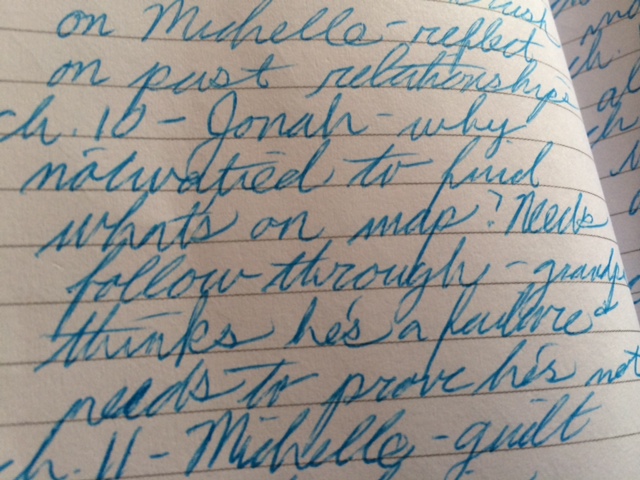 on Michelle - reflect
on past relationships
ch. 10 - Jonah - why
motivatied to find
whats on map? Needs
follow through - grandp
thinks he's a failure &
needs to prove he's not
ch. 11 - Michelle - guilt